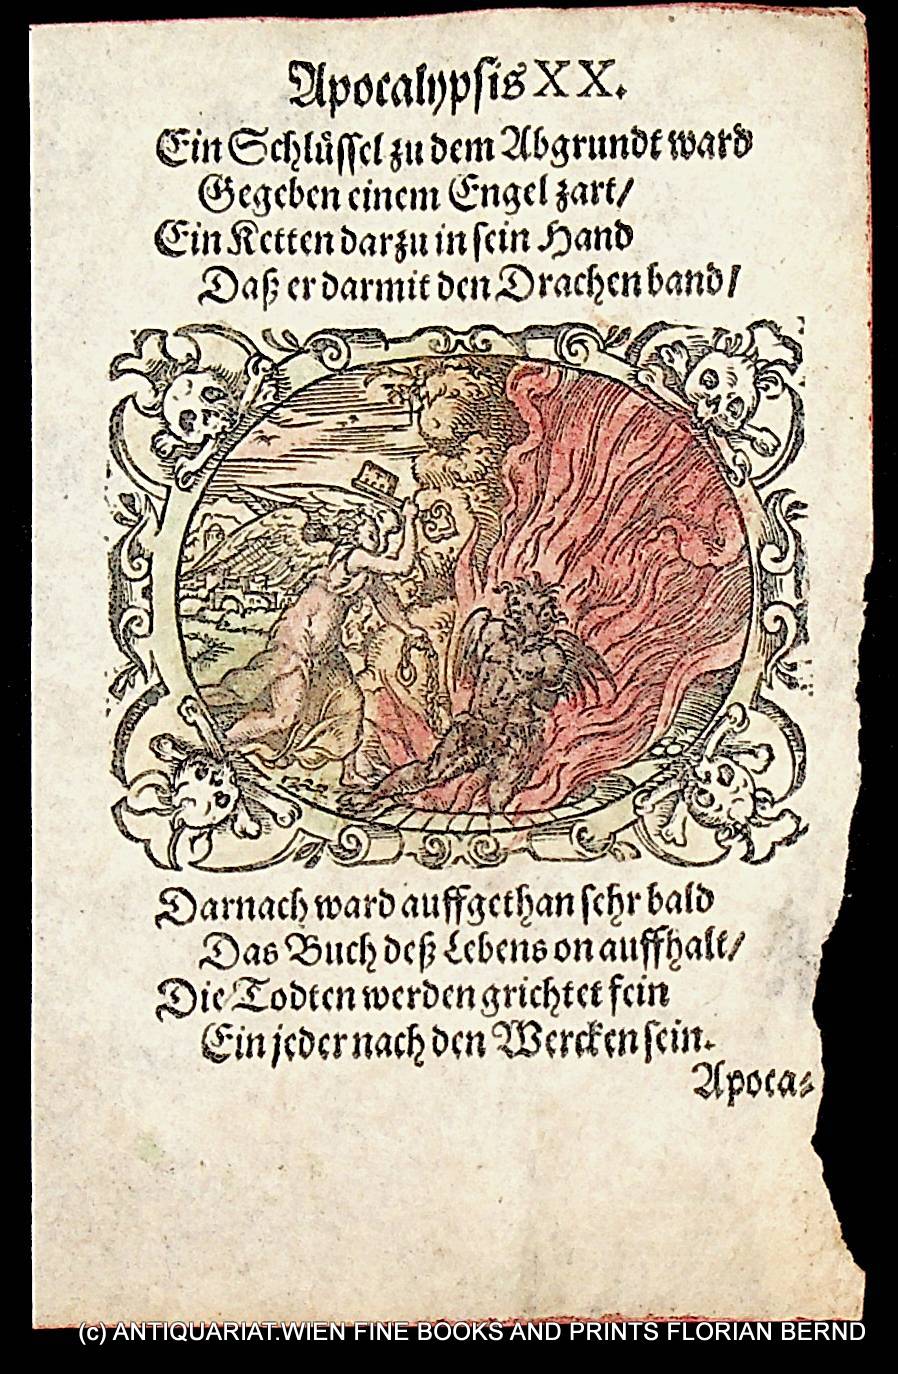 Apocalypsis XX.
Ein Schlůssel zu dem Abgrundt ward
Gegeben einem Engel zart/
Ein Ketten darzu in sein Hand
Daß er darmit den Drachen band/
Darnach ward auffgethan sehr bald
Das Buch deß Lebens on auffhalt/
Die Todten werden grichtet fein
Ein jeder nach den Wercken sein.
Apoca⸗
(c) ANTIQUARIAT.WIEN FINE BOOKS AND PRINTS FLORIAN BERND